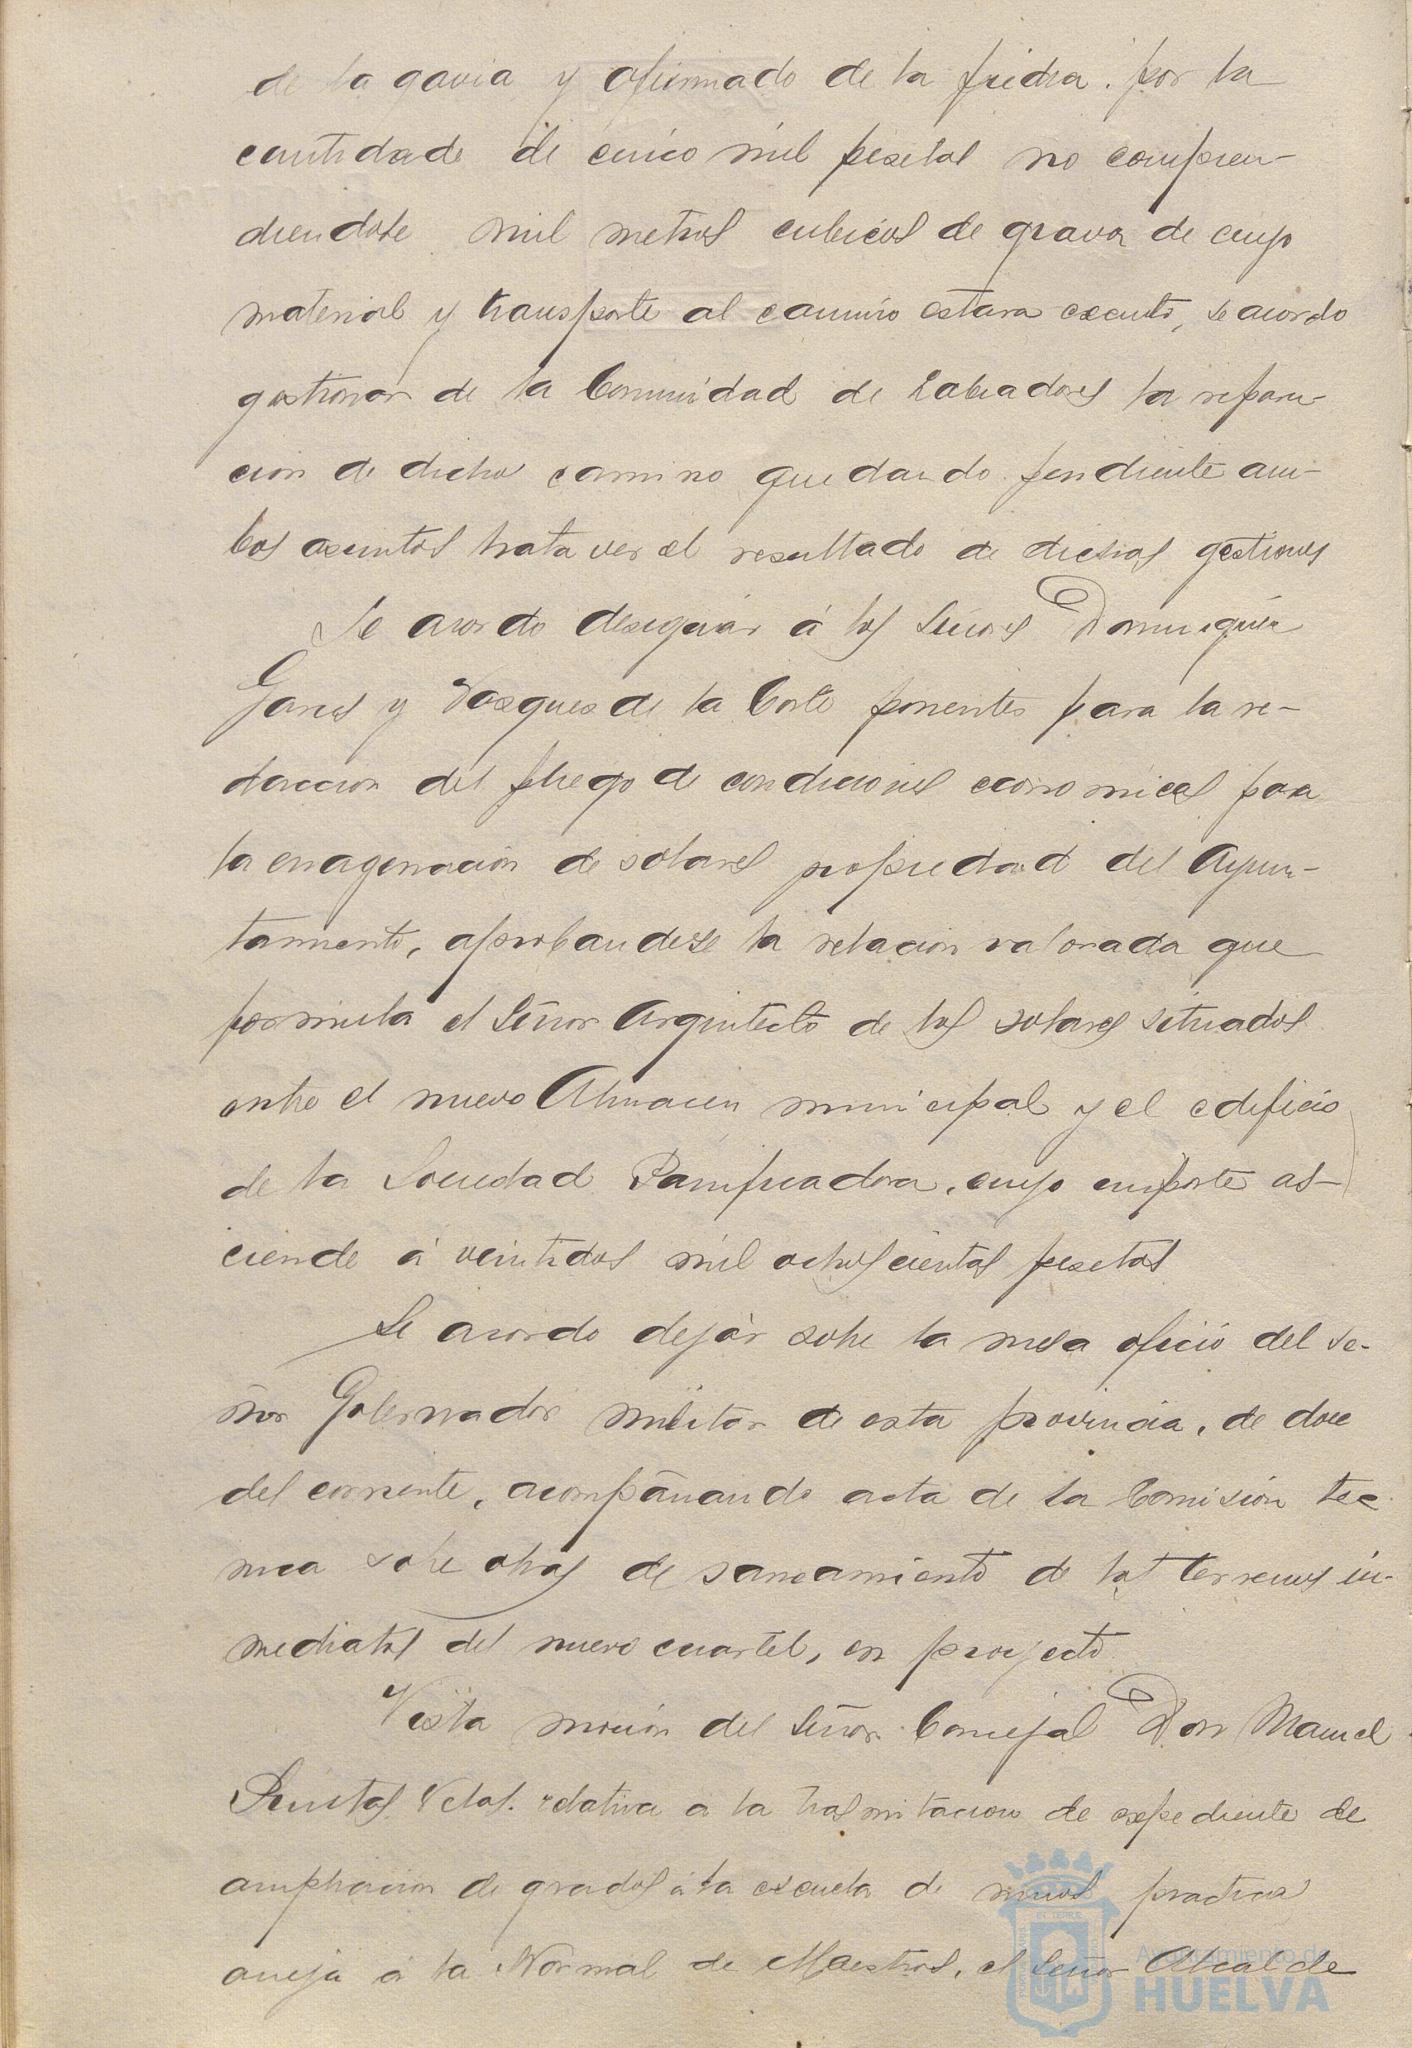 de la gavia y afirmado de la piedra. por la
cantidade de cinco mil pesetas no compren-
diendose mil metros cubicos de grava de cuyo
material y transporte al camino estara exento, se acordo
gestionar de la Comunidad de Labradores la repara-
cion de dicho camino quedando pendiente am-
bos asuntos hasta ver el resultado de dichas gestiones
Se acordo designar á los Señores Dominguez
Garcés y Vazquez de la Corte ponentes para la re-
daccion del pliego de condiciones economicas para
la enagenación de solares propiedad del Ayun-
tamiento, aprobandose la relacion valorada que
formula el Señor Arquitecto de los solares situados
entre el nuevo Almacen municipal y el edificio
de la Sociedad Panificadora, cuyo importe as-
ciende á veintidos mil ochoscientas pesetas
Se acordo dejár sobre la mesa oficio del Se-
ñor Gobernador militar de esta provincia, de doce
del corriente, acompañando acta de la Comisión tec
nica sobre obras de saneamiento de los terrenos in-
mediatos del nuevo cuartel, en proyecto
Vista moción del Señor Concejal Don Manuel
relativa a la trasmitacion de expediente de
ampliación de grados á la escuela de niños practica
aneja á la Normal de Maestros, el Señor Alcalde
Ayuntamiento de
HUELVA